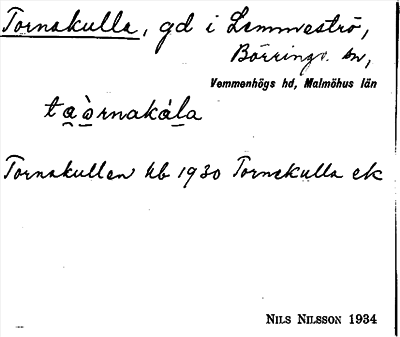 Tornakulla, gd i Lemmeströ,
Börringe sn,
Vemmenhögs hd, Malmöhus län
taòrnakála
Tornakullen kb 1930 Tornekulla ek
NILS NILSSON 1934